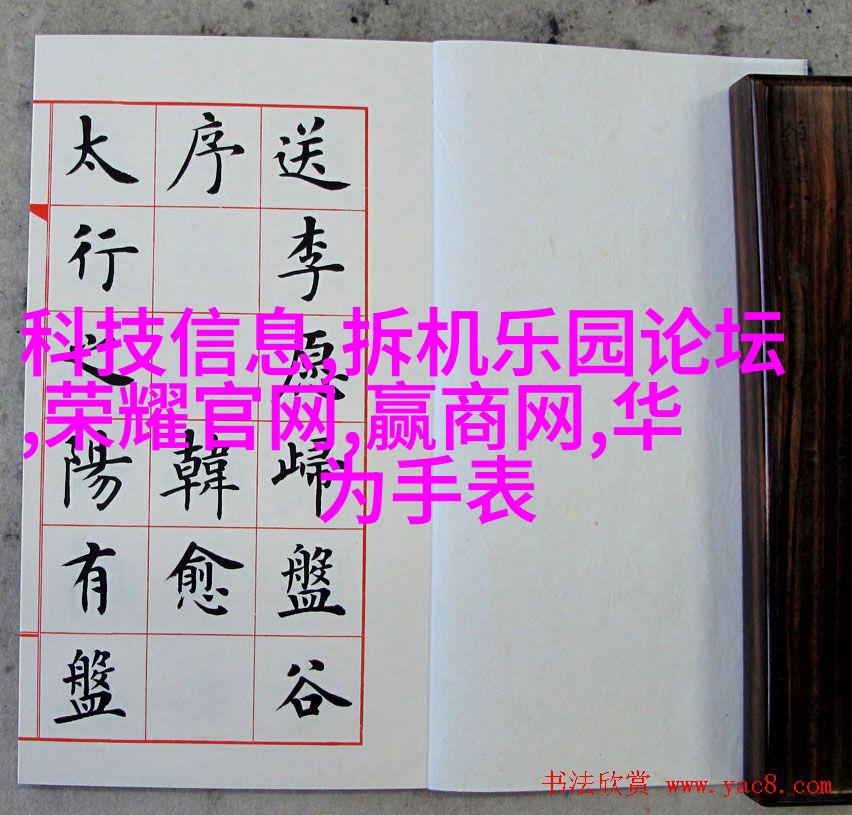 送李愿歸盤谷
序 韓愈
太行之陽有盤
科技信息,拆机乐园论坛
,荣耀官网,赢商网,华
为手表
书法欣赏 www.yac8.com